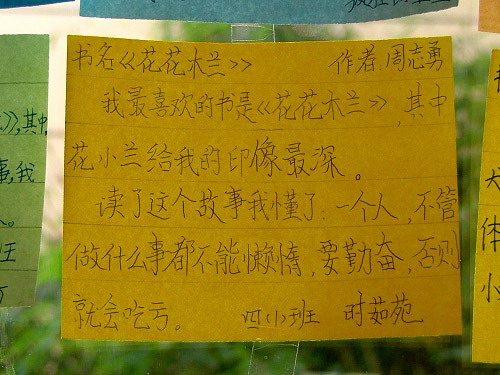 书名《花花木兰》 作者:周志勇
我最喜欢的书是《花花木兰》,其中
花小兰给我的印像最深。
读了这个故事我懂了:一个人,不管
做什么事都不能懒惰,要勤奋,否则
就会吃亏。 四(1)班 时茹苑
其中
事,我
体
小